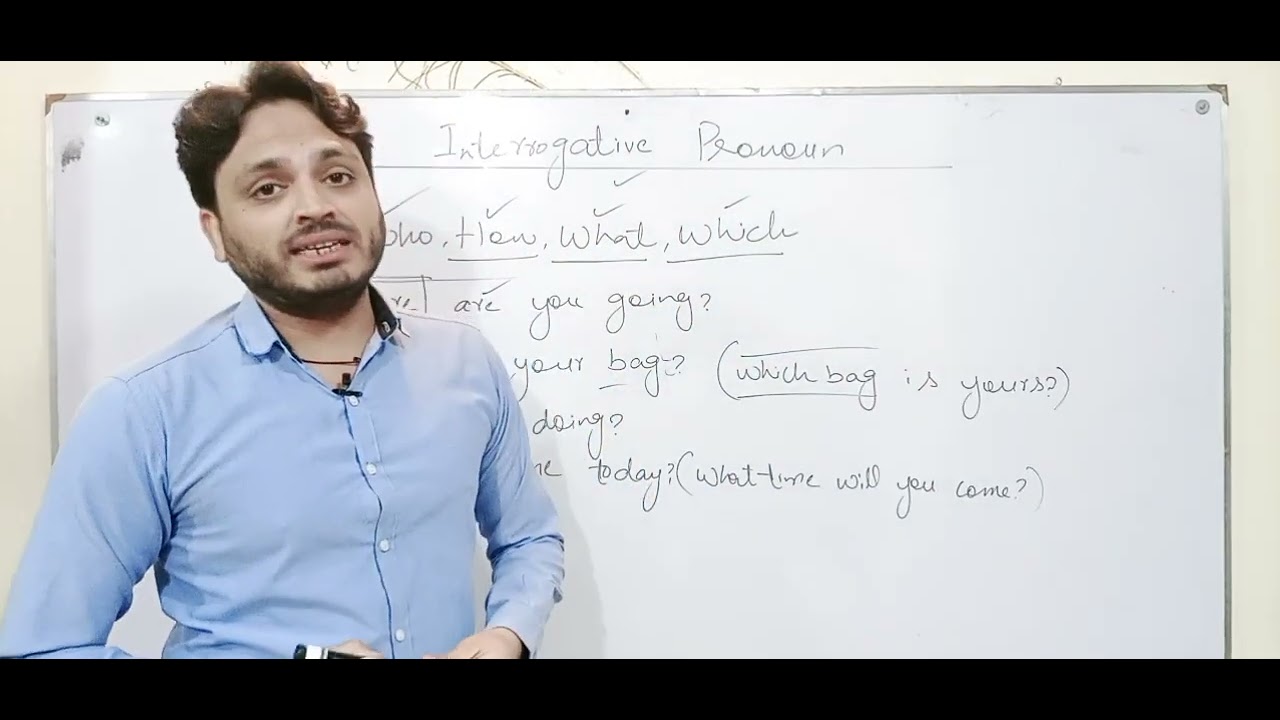 Interrogative Pronoun
How, What, Which
are you going?
your bag? (which bag is yours?)
doing?
today? (What time will you come?)